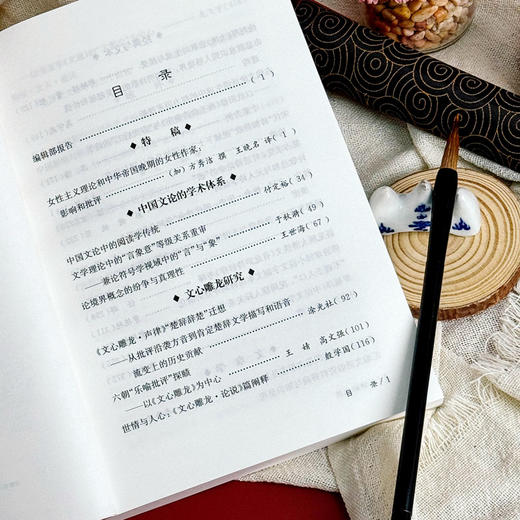 目 录
编辑部报告 ……………………( 1 )
◆ 特 稿 ◆
女性主义理论和中华帝国晚期的女性作家:
影响和批评 ……………(加) 方秀洁 撰 王晓名 译( 1 )
◆ 中国文论的学术体系 ◆
中国文论中的阅读学传统 ……………… 付定裕( 34 )
文学理论中的“言象意”等级关系重审
——兼论符号学视域中的“言”与“象” ……… 于秋漪( 49 )
论境界概念的纷争与真理性 ……………… 王世海( 67 )
◆ 文心雕龙研究 ◆
《文心雕龙·声律》“楚辞辞楚”迁想
——从批评沿袭方音到肯定楚辞文学描写和语音
流变上的历史贡献 ……………… 涂光社( 92 )
六朝“乐喻批评”探赜
——以《文心雕龙》为中心 ……… 王 婧 高文强(101)
世情与人心:《文心雕龙·论说》篇阐释 ……… 殷学国(116)
目 录 / 1